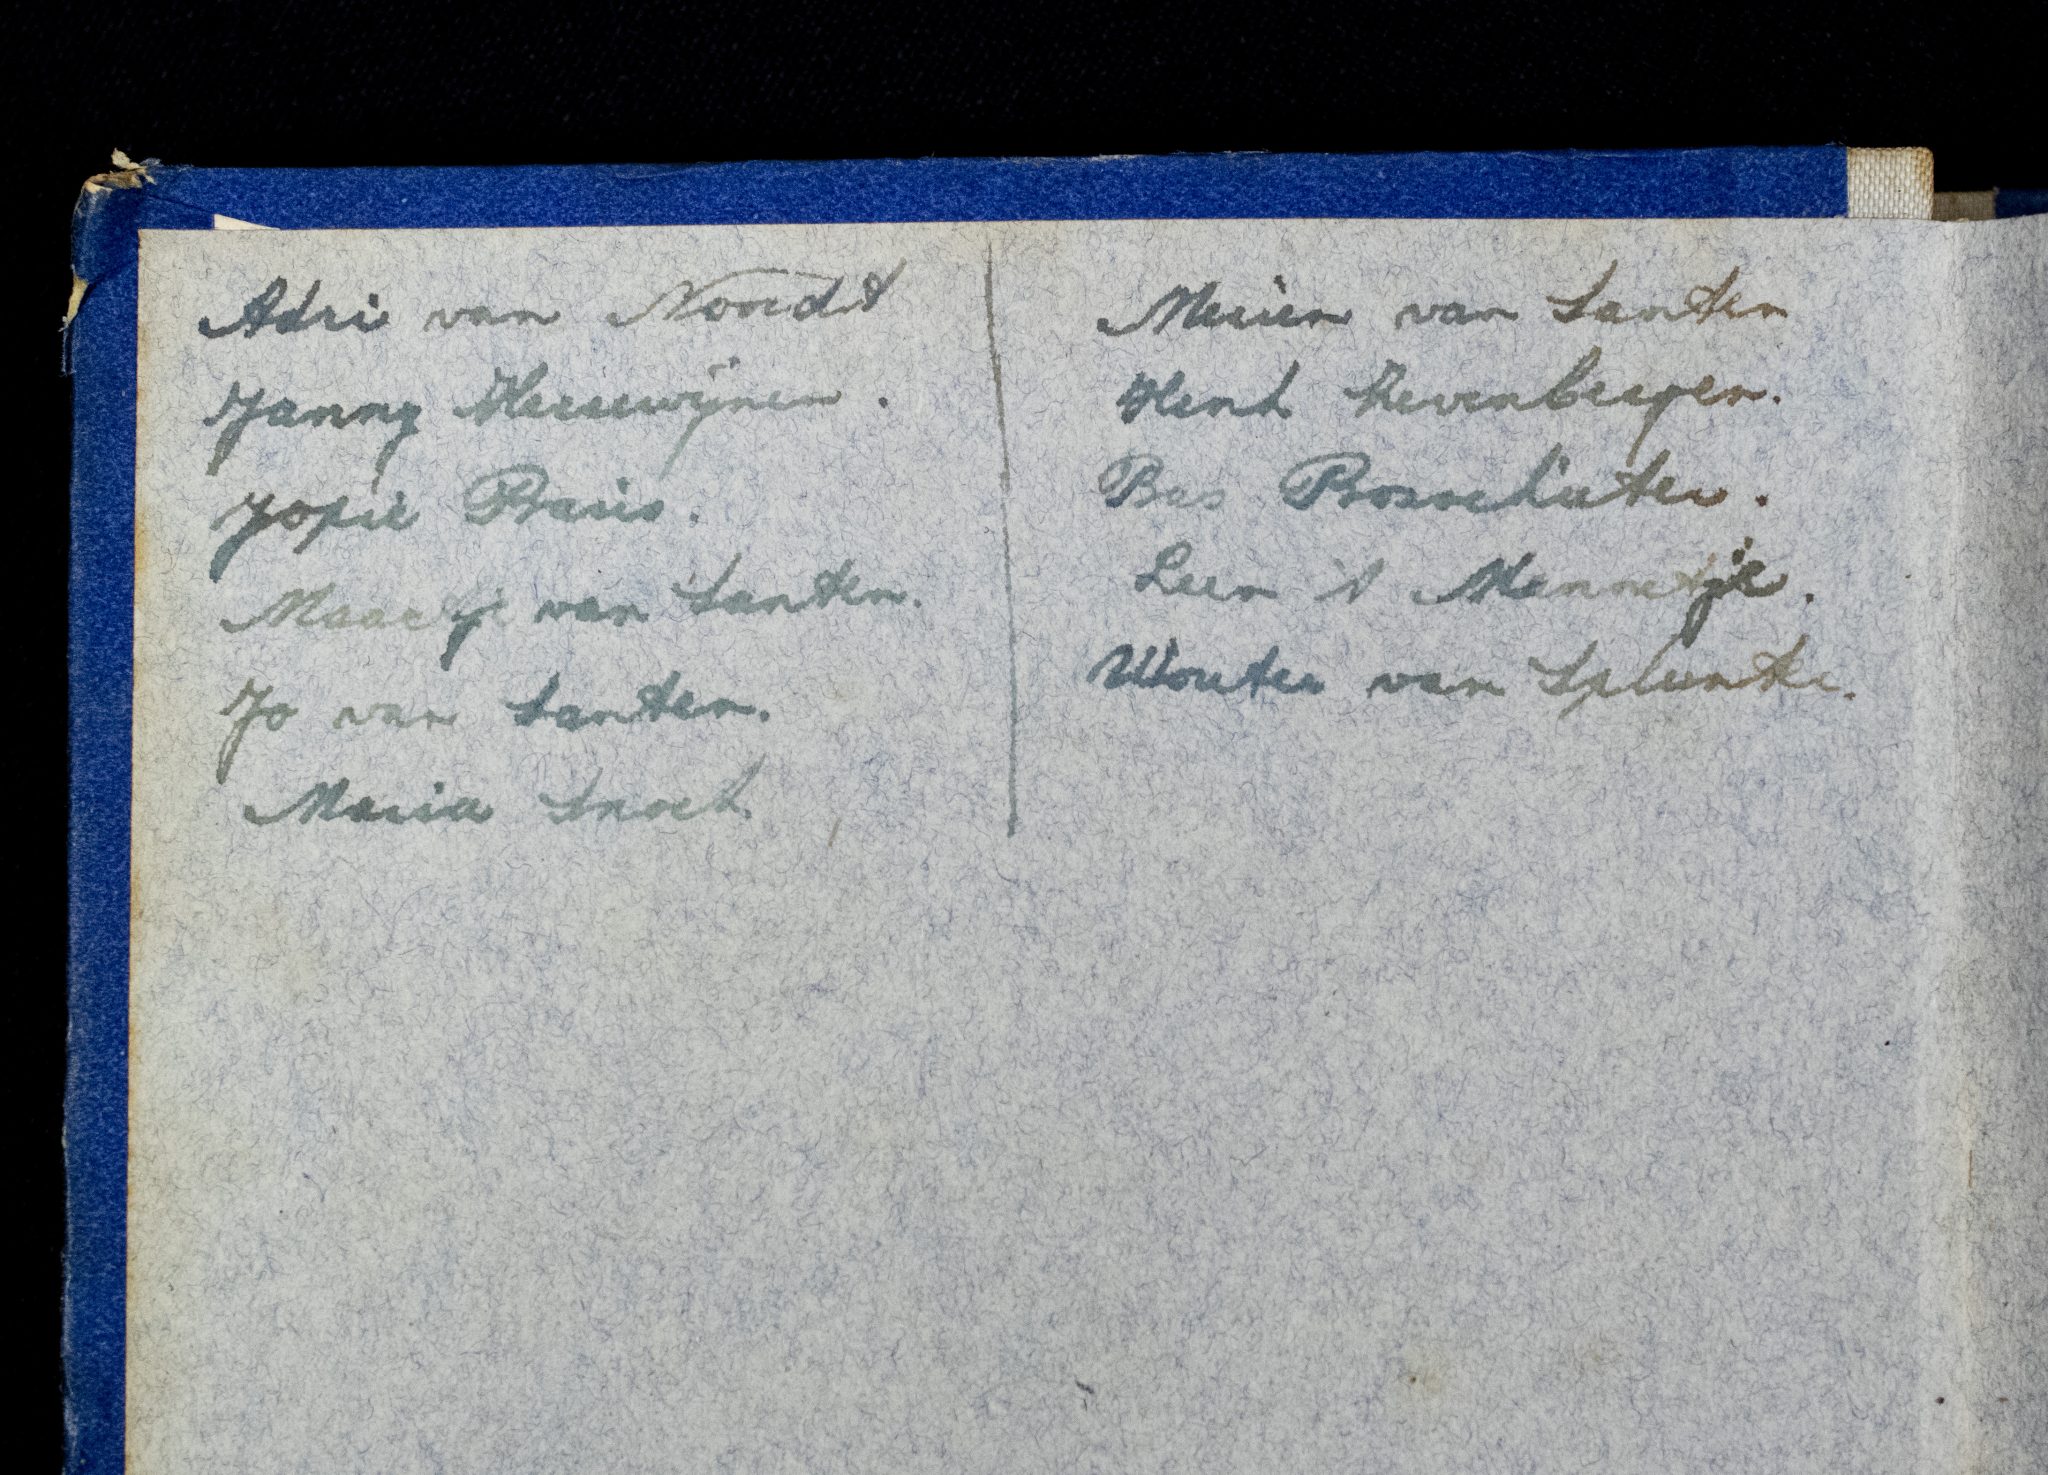 Adri van Noordt
Janny Meeuwijnen.
Jopie Baris.
Maartje van Santen.
Jo van Santen.
Maria Snoek.
Marien van Santen
Henk Zevenbergen.
Bas Bosschieter.
Leen 't Mannetje.
Wouter van Splunter.